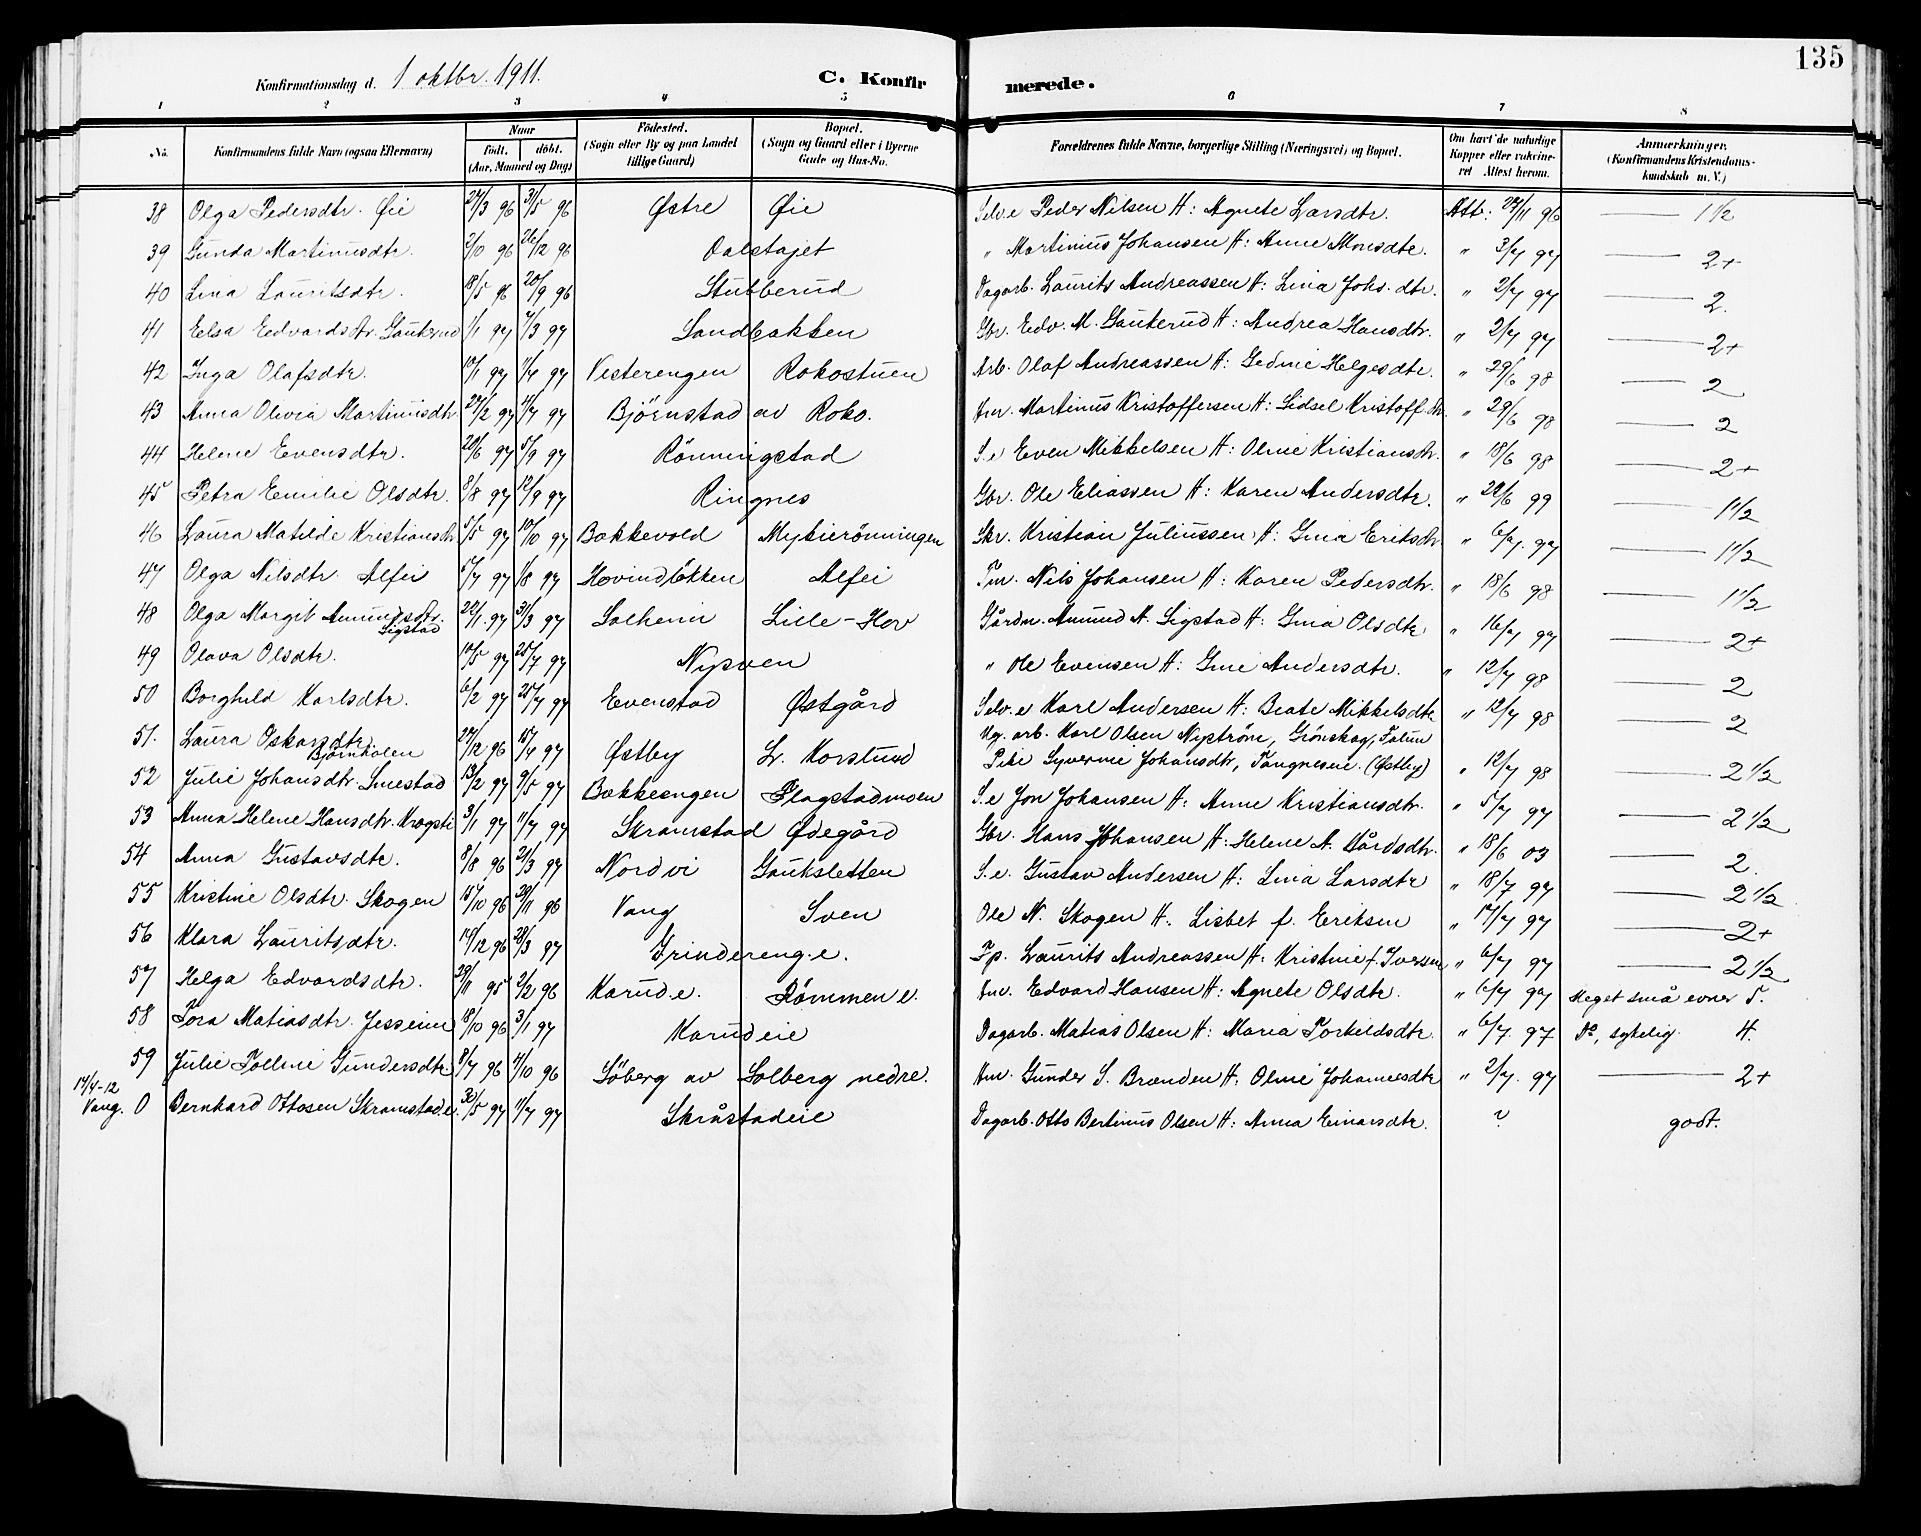 135
Konfirmationsdag d. 1 oktbr. 1911.
C. Konfirmerede.
1 2 3 4 5 6 7 8
No. Konfirmandens fulde Navn (ogsaa Efternavn) Naar født. døbt. (Aar, Maaned og Dag) Fødested. (Sogn eller By og paa Landet tillige Gaard) Bopæl. (Sogn og Gaard eller i Byerne Gade og Hus-No. Forældrenes fulde Navne, borgerlige Stilling (Næringsvei) og Bopæl. Om havt de naturlige Kopper eller vakcineret Attest herom. Anmerkninger. (Konfirmandens Kristendomskundskab m. V.)
38 Olga Pedersdtr. Øie 27/3 96 31/5 96 Østre Øie Selv.e Peder Nilsen H: Agnete Larsdtr. Att: 27/11 96 1 1/2
39 Gunda Martinusdtr. 2/10 96 26/12 96 Dalstajet " Martinius Johansen H: Anne Monsdtr. " 3/7 97 2+
40 Lina Lauritsdtr. 18/5 96 20/9 96 Stubberud Dagarb. Laurits Andreassen H: Lina Johs.dtr. " 2/7 97 2.
41 Eelsa Eedvardsdtr. Gaukerud 1/1 97 7/3 97 Sandbakken Gbr. Edv. M. Gaukerud H: Andrea Hansdtr. " 2/7 97 2+
42 Inga Olafsdtr. 10/1 97 1/7 97 Vesterengen Rokostuen Arb. Olaf Andreassen H: Gedine Helgesdtr. " 29/6 98 2
43 Anna Olivia Martinusdtr 27/2 97 4/7 97 Bjørnstad av Roko. Hm. Martinus Kristoffersen H: Sidsel Kristoff.dtr. " 29/6 98 2
44 Helene Evensdtr. 20/6 97 5/9 97 Rønningstad S.e Even Mikkelsen H: Oline Kristiansdtr. " 18/6 98 2+
45 Petra Eemilie Olsdtr. 8/8 97 12/9 97 Ringnes Gbr. Ole Eliassen H: Karen Andersdtr. " 22/6 99 1 1/2
46 Laura Matilde Kristiansdtr 5/5 97 10/10 97 Bakkevold Mykierønningen Skr. Kristian Juliussen H: Gina Eriksdtr " 6/7. 97 1 1/2
47 Olga Nilsdtr. Alfei 5/7 97 1/8 97 Hovindløkken Alfei Tm. Nils Johansen H: Karen Pedersdtr. " 18/6 98 1 1/2
48 Olga Margit Amundsdtr. Sigstad 22/1. 97 31/3 97 Solheim Lille-Hov Gårdm. Amund A. Sigstad H: Gina Olsdtr " 16/7 97 2+
49 Olava Olsdtr. 10/5 97 25/7 97 Nysven " Ole Evensen H: Gine Andersdtr. " 12/7 98 2
50 Borghild Karlsdtr. 6/2 97 25/7 97 Evenstad Østgård Selv.e Karl Andersen H: Beate Mikkelsdtr " 12/7 98 2
51. Laura Oskarsdtr. Bjørnholen 27/12 96 15/4 97 Østby L. Korslund Ug. arb. Karl Olsen Nystrøm, Grönskog, Falun
Pike Syverine Johansdtr, Tangneseie. (Østby) " 12/7 98 2 1/2
52 Julie Johansdtr. Smestad 13/2 97 9/5 97 Bakkeengen Flagstadmoen S.e Jon Johansen H: Anne Kristiansdtr. " 5/7 97 2 1/2
53 Anna Helene Hansdtr. Krogsti 3/1 97 11/7 97 Skramstad Ødegård Gbr. Hans Johansen H: Helene A. Bårdsdtr. " 18/6 03 2.
54 Anna Gustavsdtr. 8/8 96 21/3 97 Nordvi Gauksletten S.e. Gustav Andersen H: Lina Larsdtr " 18/7 97 2 1/2
55 Kristine Olsdtr. Skogen 15/10 96 29/11 96 Vang Sven Ole N. Skogen H. Lisbet f. Eriksen " 17/7 97 2+
56 Klara Lauritsdtr. 14/12 96 28/3 97 Grindereng.e. Fp. Laurits Andreassen H: Kristine f. Iversen " 6/7 97 2 1/2
57 Helga Edvardsdtr. 29/11 95 2/2 96 Karud.e. Rømmen e. Hm. Edvard Hansen H: Agnete Olsdtr. " 6/7 97 Meget små evner 5.
58 Tora Matiasdtr. Jesseim 18/10 96 3/1 97 Karudeie Dagarb. Matias Olsen H: Maria Torkildsdtr. " 6/7. 97 Do, sykelig. 4.
59 Julie Polline Gundersdtr. 8/7 96 4/10 96 Søberg av Solberg nedre. Hm. Gunder S. Brænden H: Oline Johannesdtr " 2/7. 97 2+
14/4-12
Vang. 0 Bernhard Ottosen Skramstad e. 30/5 97 11/7 97 Skråstadeie Dagarb. Otto Bertinus Olsen H: Anna Einarsdtr. ? godt.